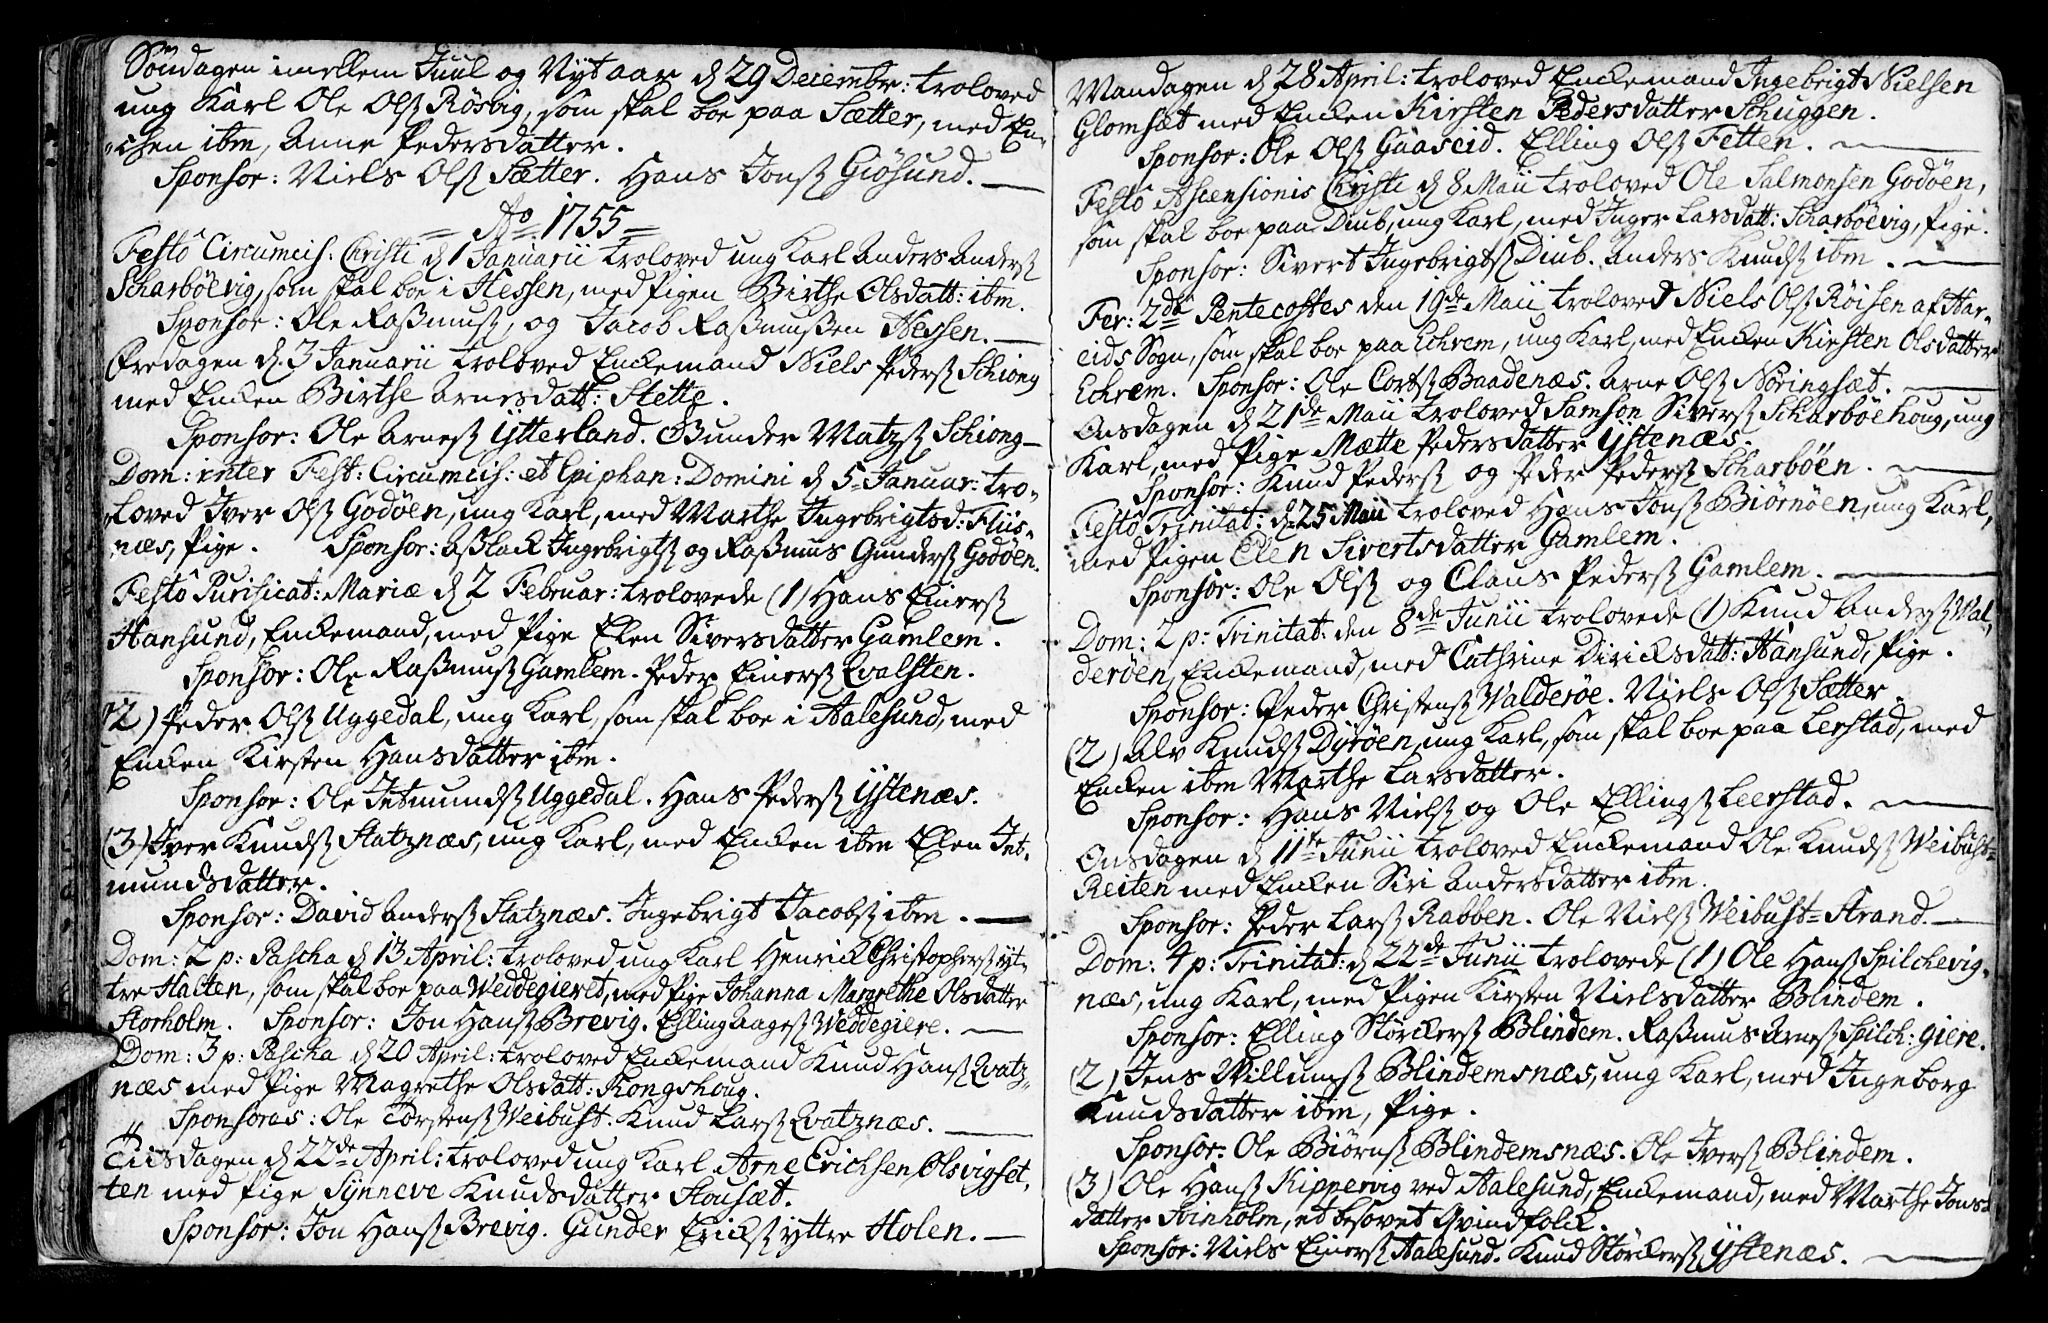 Søndagen imellem Juul og Nyt aar d 29 Decembr: troloved
ung Karl Ole Olsß Røsvig, som skal boe paa Sætter, med En-
chen ibm, Anne Pedersdatter.
Sponsor: Niels Olsß Sætter. Hans Jonsß Giøsund.
Ao 1755
Festô Circumcis: Christi d 1 Januarii troloved ung Karl Anders Andersß
Scharbøevig, som skal boe i Hessen, med Pigen Birthe Olsdatt: ibm.
Sponsor: Ole Rasmusß, og Jacob Rasmussen Hessen.
Fredagen d. 3 Januarii troloved Enckemand Niels Pedersß Schiong
med Encken Birthe Arnesdatt: Stette.
Sponsor: Ole Arnesß Ytterland. Gunder Matzß Schiong
Dom: inter Fest: Circumcis: et Epiphan: Domini d 5 Januar: tro-
loved Iver Olsß Godøen, ung Karl, med Marthe Ingebrigtsd: Fliis-
næs, Pige. Sponsor: Aslack Ingebrigtsß og Rasmus Gundersß Godøen.
Festô Purificat: Mariæ d 2 Februar: trolovede (1) Hans Einersß
Hansund, Enckemand, med Pige Elen Siversdatter Gamlem.
Sponsor: Ole Rasmusß Gamlem. Peder Einersß Qvalsten.
(2) Peder Olsß Uggedal, ung Karl, som skal boe i Aalesund, med
Encken Kirsten Hansdatter ibm.
Sponsor: Ole Intmundsß Uggedal. Hans Pedersß Ystenæs.
(3) Iver Knudsß Slatznæs, ung Karl, med Encken ibm Elen Int-
mundsdatter.
Sponsor: David Andersß Slatznæs. Ingebrigt Jacobsß ibm.
Dom: 2 p: Pascha d 13 April: troloved ung Karl Henrick Christophersß Yt-
tre Halten, som skal boe paa Weddegieret, med Pige Johanna Margrethe Olsdatter
Storholm. Sponsor: Jon Hansß Brevig. Elling Aagesß Weddegiere.
Dom: 3 p: Pascha d 20 April: troloved Enckemand Knud Hansß Qvatz-
næs med Pige Magrethe Olsdatt: Kongshoug.
Sponsoras: Ole Torstensß Weibust. Knud Larsß Qvatznæs.
Tiisdagen d 22de April: troloved ung Karl Arne Erichsen Olsvigset-
ten med Pige Synneve Knudsdatter Slousæt.
Sponsor: Jon Hansß Brevig. Gunder Ericksß Yttre Holen.
Mandagen d 28 April: troloved Enckemand Ingebrigt Nielsen
Glomsæt med Encken Kirsten Pedersdatter Schuggen.
Sponsor: Ole Olsß Gaaseid. Elling Olsß Fetten.
Festô Ascensionis Christi d 8 Maii troloved Ole Salmonsen Godøen,
som skal boe paa Diub, ung Karl, med Inger Larsdatt: Scharbøevig, Pige.
Sponsor: Sivert Ingebrigtsß Diub. Anders Knudsß ibm.
Fer: 2da Pentecostes den 19de Maii troloved Niels Olsß Røisen af Har-
eids Sogn, som skal boe paa Echrem, ung Karl, med Encken Kirsten Olsdatter
Echrem. Sponsor: Ole Cortsß Baadenæs. Arne Olsß Nøringsæt.
Onsdagen d 21de Maii troloved Samson Siversß Scharbøehoug, ung
Karl, med Pige Mætte Pedersdatter Ystenæs.
Sponsor: Knud Pedersß og Peder Pedersß Scharbøen.
Festô Trinitat: d 25 Maii troloved Hans Jonsß Biørnøen, ung Karl,
med Pigen Elen Sivertsdatter Gamlem.
Sponsor: Ole Olsß og Claus Pedersß Gamlem.
Dom: 2 p: Trinitat: den 8de Junii trolovede (1) Knud Andersß Wal-
derøen, Enckemand, med Cathrine Diricksdatt: Hansund, Pige.
Sponsor: Peder Christensß Walderøe. Niels Olsß Sætter.
(2) Alv Knudsß Dyrøen, ung Karl, som skal boe paa Lerstad, med
Encken ibm Marthe Larsdatter.
Sponsor: Hans Nielsß og Ole Ellingsß Leerstad.
Onsdagen d 11te Junii troloved Enckemand Ole Knudsß Weibust-
Reiten med Encken Siri Andersdatter ibm.
Sponsor: Peder Larsß Rabben. Ole Nielsß Weibust-Strand.
Dom: 4 p: Trinitat: d 22de Junii trolovede (1) Ole Hansß Spilchevig-
næs, ung Karl, med Pigen Kirsten Nielsdatter Blindem.
Sponsor: Elling Størckersß Blindem. Rasmus Arnesß Spilch: giere.
(2) Jens Willumsß Blindemsnæs, ung Karl, med Ingeborg
Knudsdatter ibm, Pige.
Sponsor: Ole Biørnsß Blindemsnæs. Ole Iversß Blindem.
(3) Ole Hansß Kippervig ved Aalesund, Enckemand, med Marthe Jons-
datter Steinholm, et besovet Qvindfolck.
Sponsor: Niels Einersß Aalesund. Knud Størckersß Ystenæs.